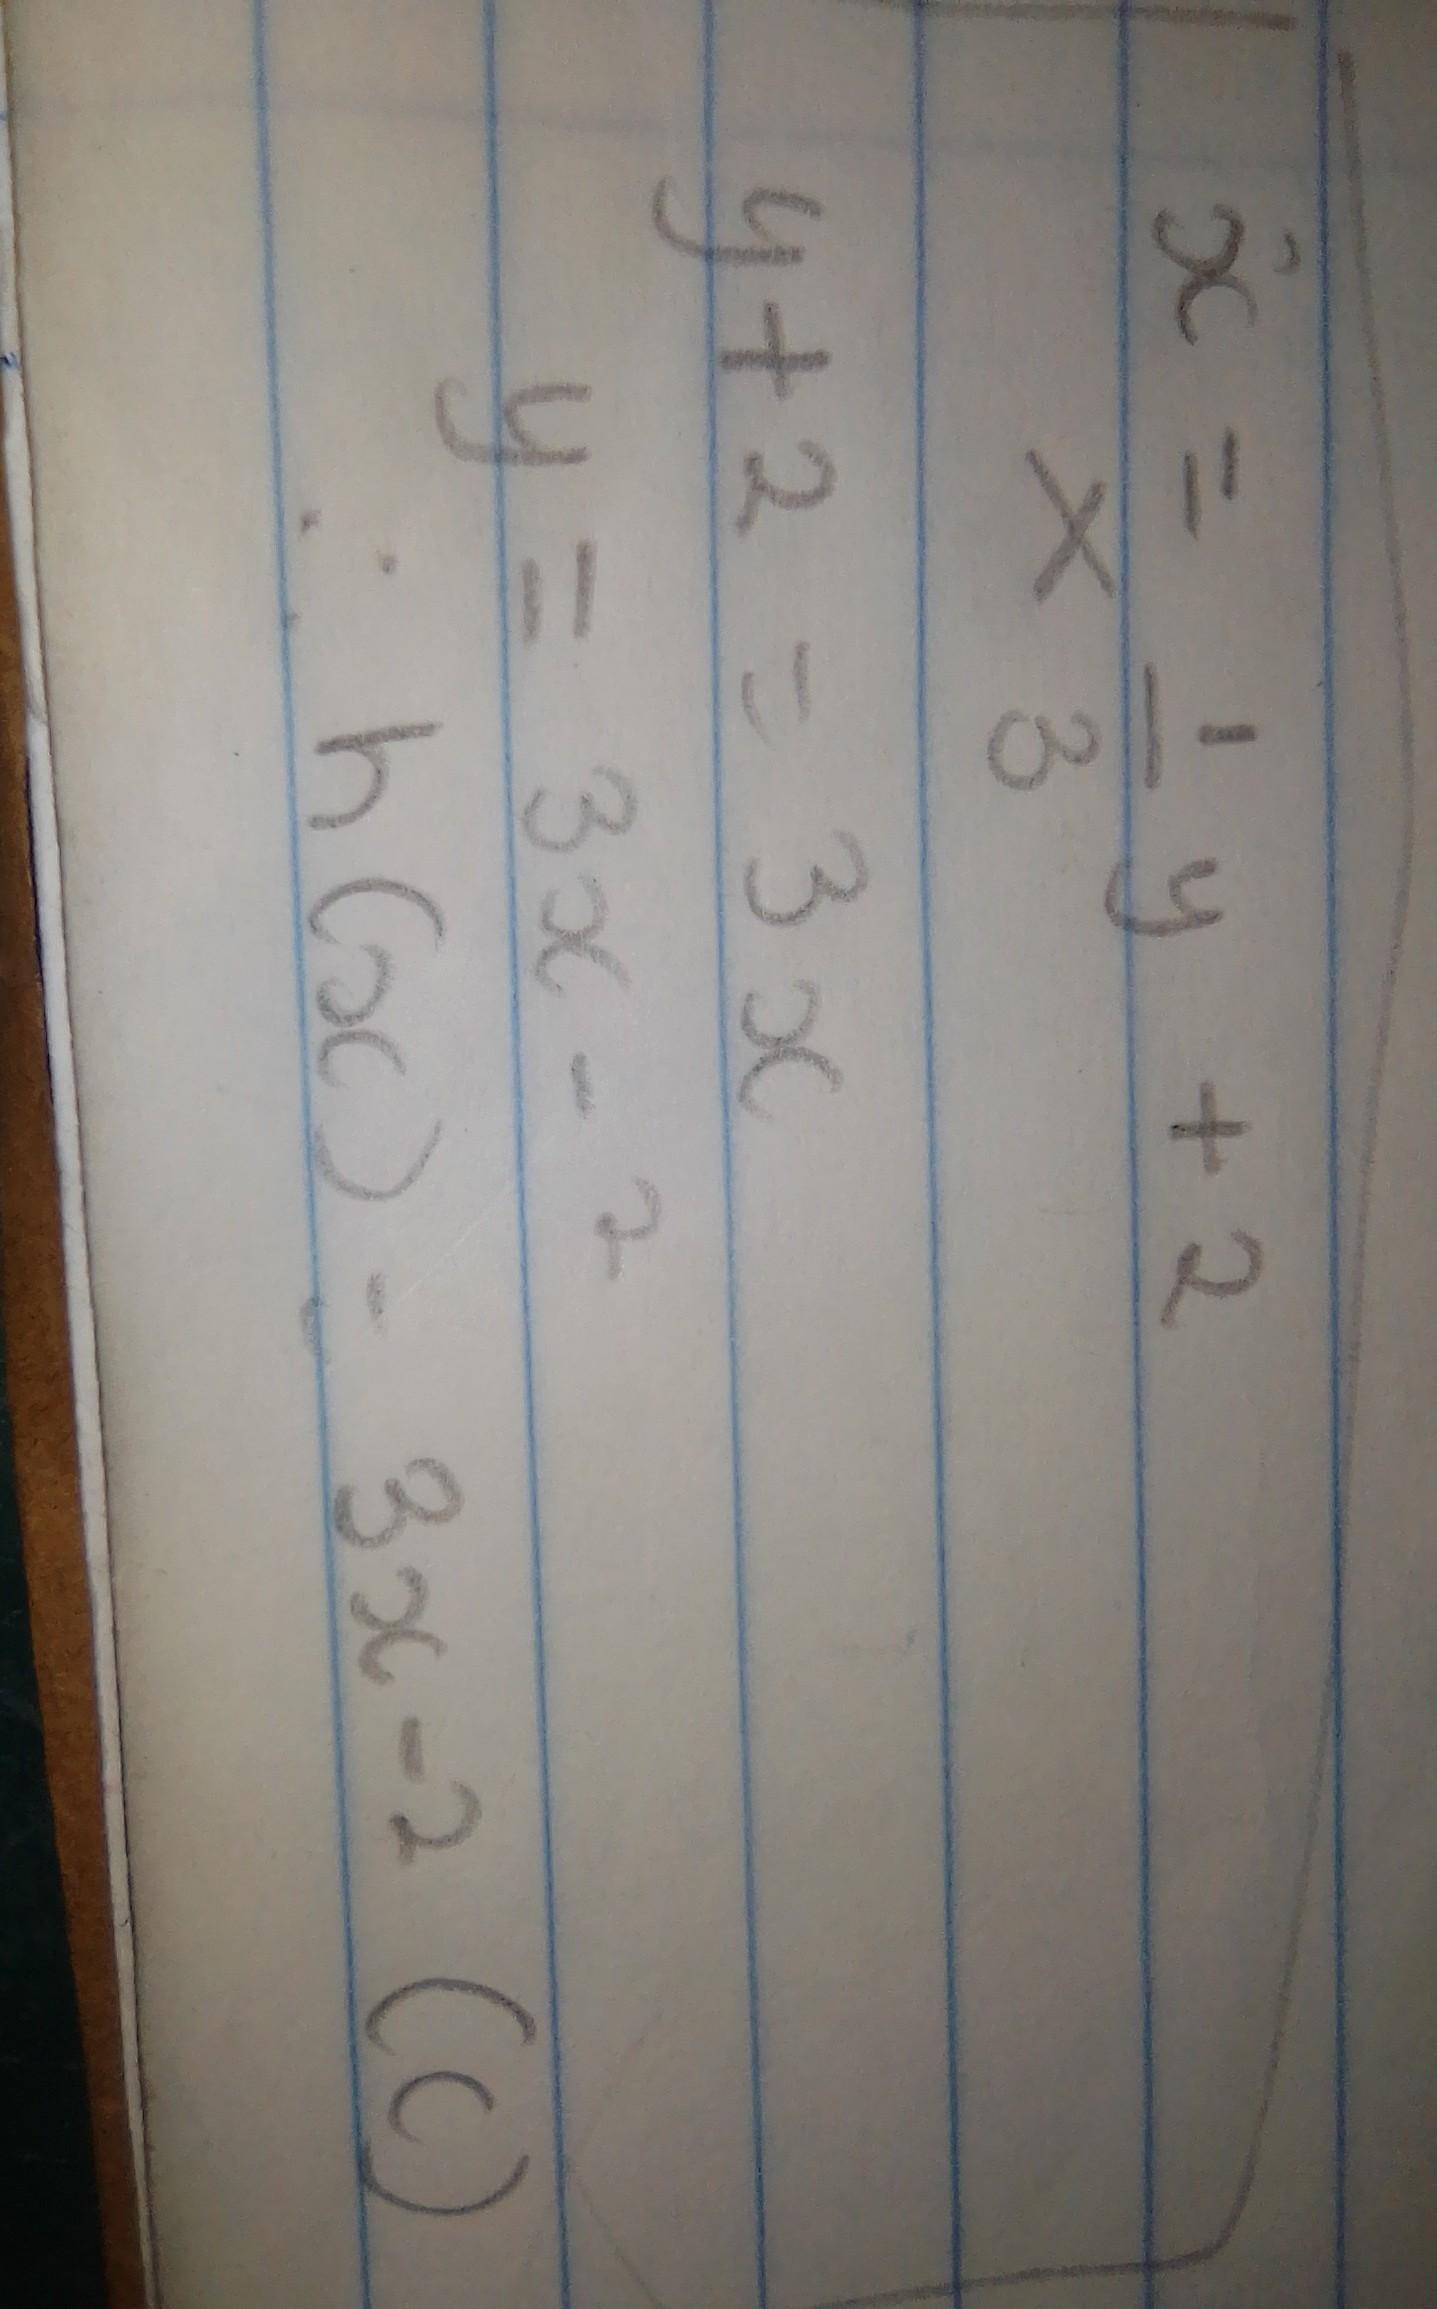 x = 1/3 y + 2
×
y + 2 = 3x
y = 3x - 2
∴ h(x) = 3x - 2 (C)